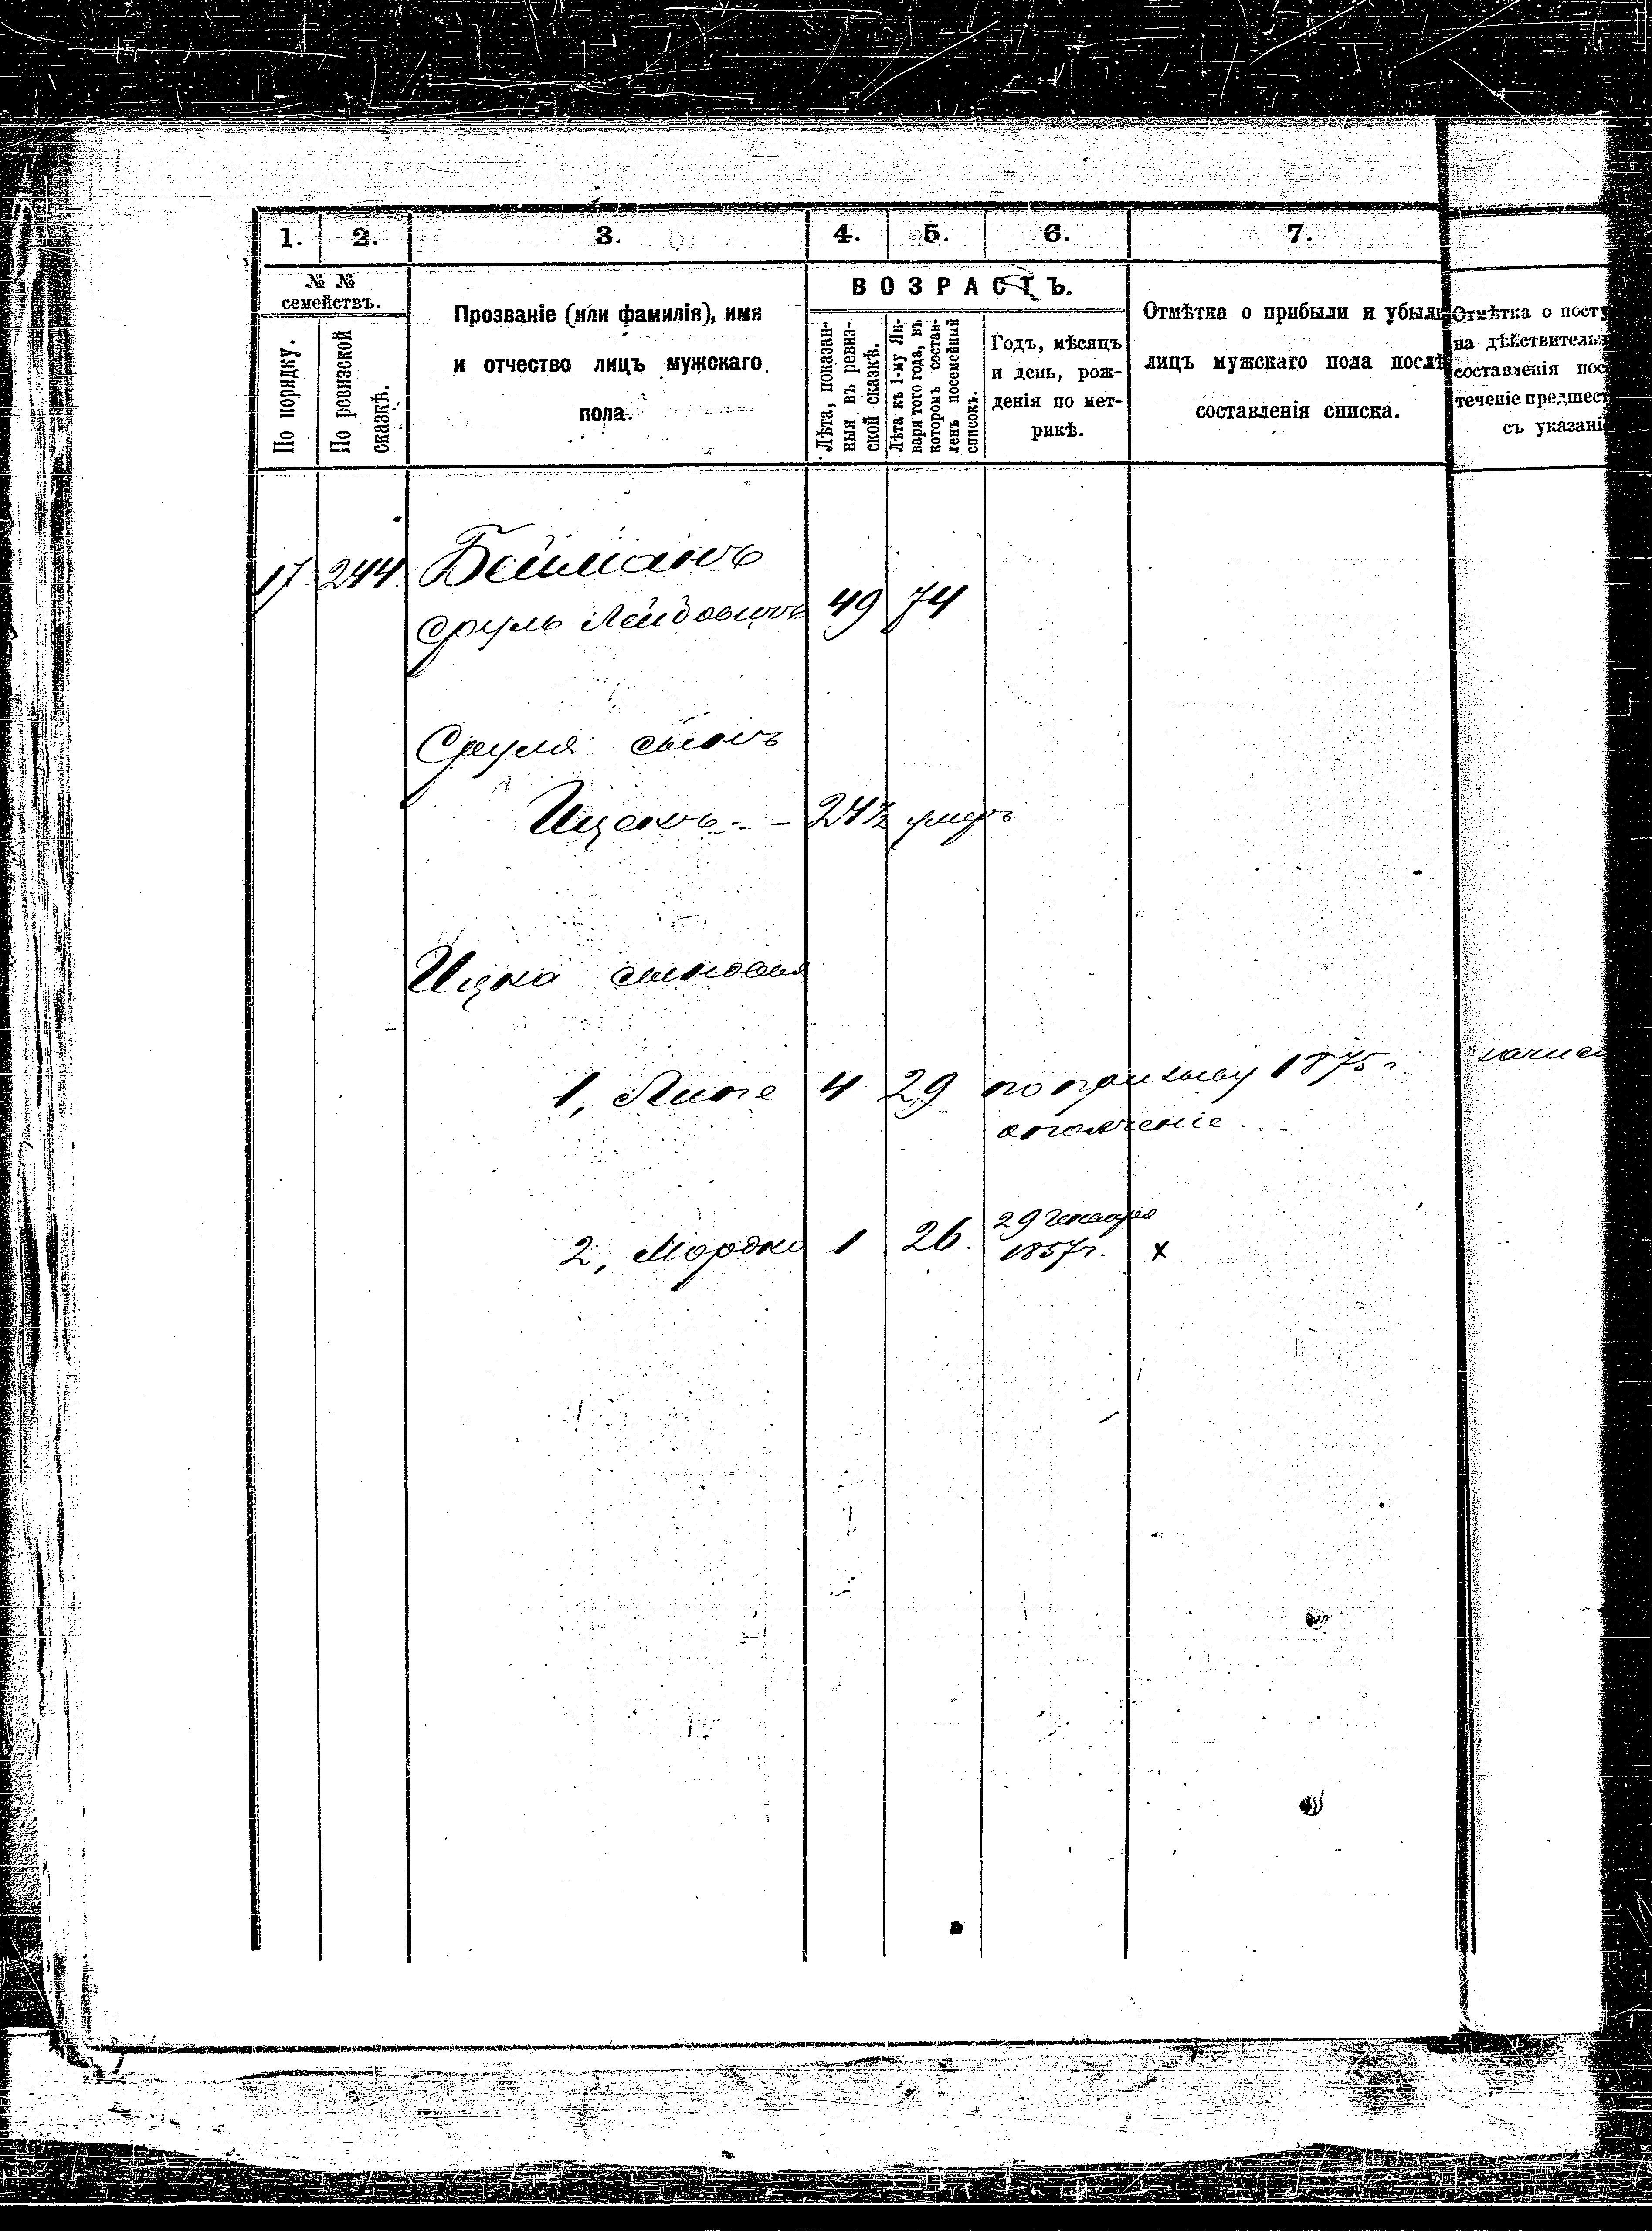 1. 2. 3. 4. 5. 6. 7.
№ №
семействъ.
По порядку.
По ревизской
сказкѣ.
Прозваніе (или фамилія), имя
и отчество лицъ мужскаго
пола.
ВОЗРАСТЪ.
Лѣта, показан-
ныя въ ревиз-
ской сказкѣ.
Лѣта къ 1-му Ян-
варя того года, въ
которомъ состав-
ленъ посемейный
списокъ.
Годъ, мѣсяцъ
и день, рож-
денія по мет-
рикѣ.
Отмѣтка о прибыли и убыли
лицъ мужскаго пола послѣ
составленія списка.
Отмѣтка о посту
на дѣйствитель
составленія пос
теченіе предшест
съ указані
17. 244. Бейманъ
Сруль Лейбовичъ 49 74
Сруля сынъ
Ицекъ. — 24½ умеръ
Ицка сыновья
1, Липе 4 29 по призыву 1875 г.
ополченіе
2, Мордко 1 26. 29 Января
1857 г. x